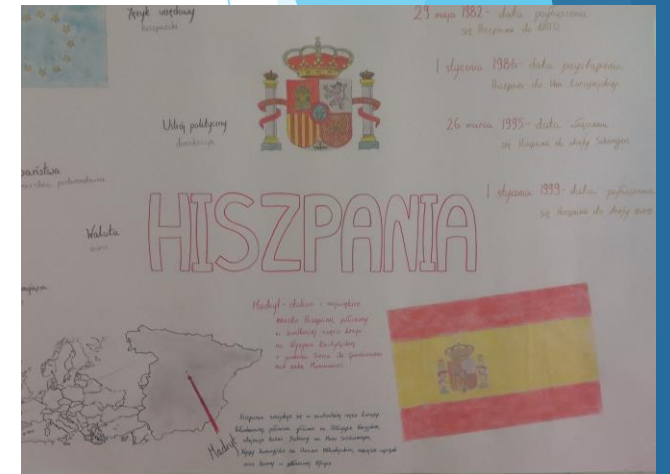 Język urzędowy
hiszpański
29 maja 1982 - data przyłączenia
się Hiszpanii do NATO
1 stycznia 1986 - data przystąpienia
Hiszpanii do Unii Europejskiej
Ustrój polityczny
demokracja
26 marca 1995 - data włączenia
się Hiszpanii do strefy Schengen
państwa
parlamentarna
1 stycznia 1999 - data przyłączenia
się Hiszpanii do strefy euro
Waluta
euro
HISZPANIA
Madryt - stolica i największe
miasto Hiszpanii położony
w środkowej części kraju
na Wyżynie Kastylijskiej
u podnóża Sierra de Guadarrama
nad rzeką Manzanares
Hiszpania znajduje się w zachodniej części Europy
położona głównie na Półwyspie Iberyjskim,
obejmuje także Baleary na Morzu Śródziemnym,
Wyspy Kanaryjskie na Oceanie Atlantyckim
oraz w północnej Afryce
Madryt